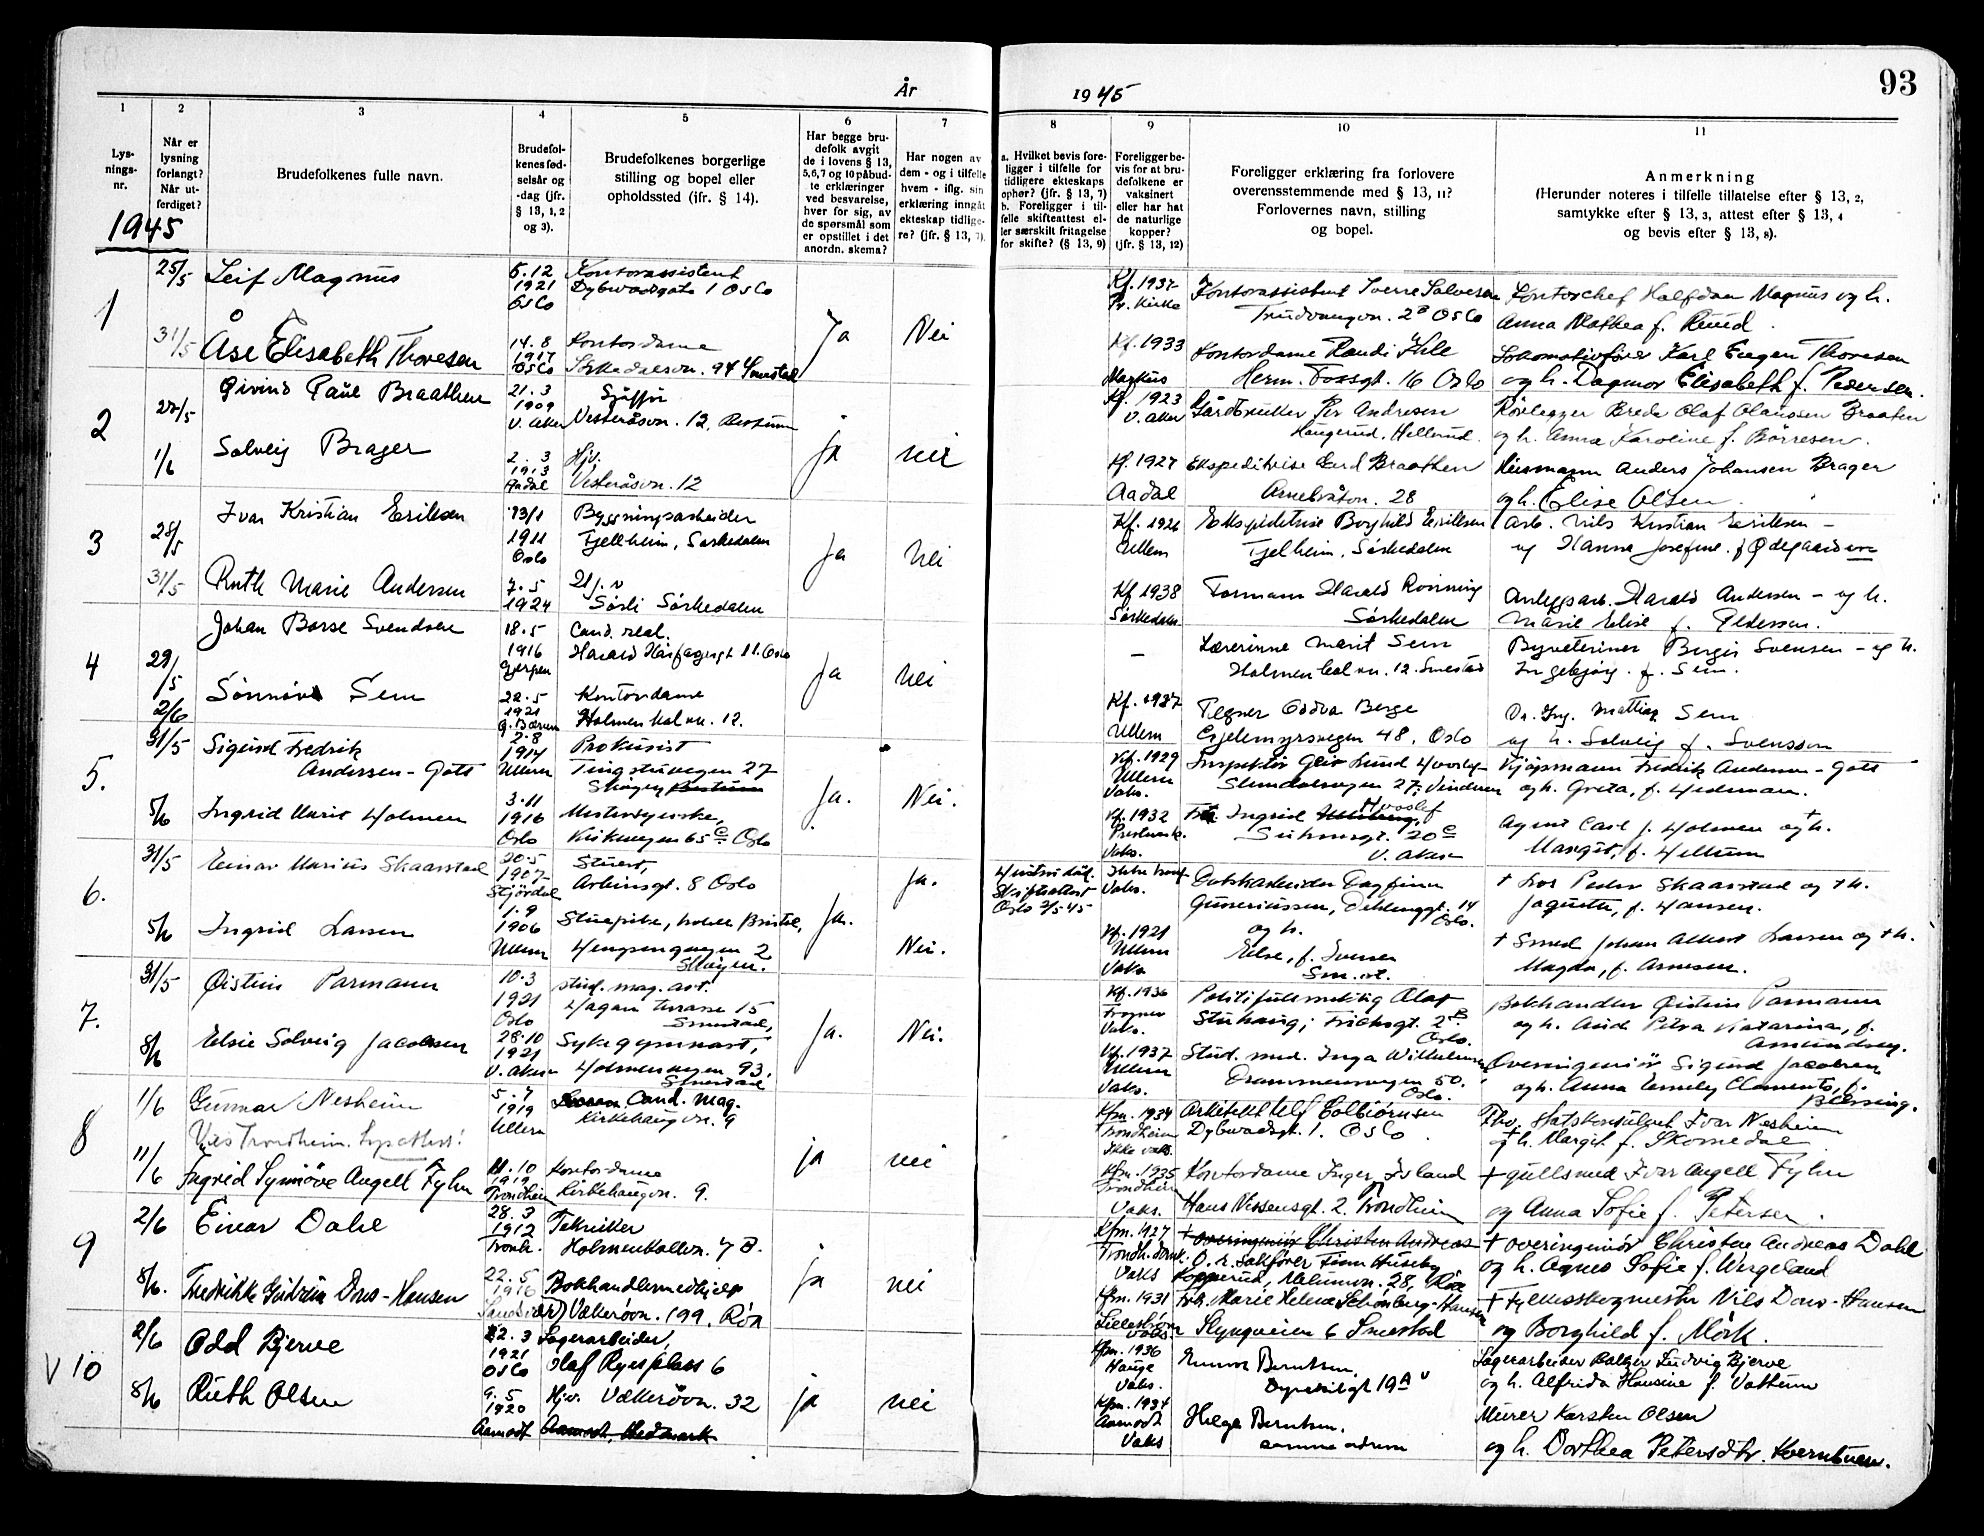 93
År
19 45
1
2
3
4
5
6
7
8
9
10
11
Lys-
nings-
nr.
Når er
lysning
forlangt?
Når ut-
ferdiget?
Brudefolkenes fulle navn.
Brudefol-
kenes fød-
selsår og
-dag (jfr.
§ 13, 1, 2
og 3).
Brudefolkenes borgerlige
stilling og bopel eller
opholdssted (jfr. § 14).
Har begge bru-
defolk avgit
de i lovens § 13,
5,6,7 og 10 påbud-
te erklæringer
ved besvarelse,
hver for sig, av
de spørsmål som
er opstillet i det
anordn. skema?
Har nogen av
dem - og i tilfelle
hvem - iflg. sin
erklæring inngåt
ekteskap tidlige-
re? (jfr. § 13, 7).
a. Hvilket bevis fore-
ligger i tilfelle for
tidligere ekteskaps
ophør? (jfr. § 13, 7)
b. Foreligger i til-
felle skifteattest el-
ler særskilt fritagelse
for skifte? (§ 13, 9)
Foreligger be-
vis for at bru-
defolkene er
vaksinert
eller har hat
de naturlige
kopper?
(jfr. § 13, 12)
Foreligger erklæring fra forlovere
overensstemmende med § 13, 11?
Forlovernes navn, stilling
og bopel.
Anmerkning
(Herunder noteres i tilfelle tillatelse efter § 13, 2,
samtykke efter § 13, 3, attest efter § 13, 4
og bevis efter § 13, 8).
1945
1
25/5 Leif Magnus
5.12
1921
Oslo
Kontorassistent
Dybwadsgate 1 Oslo
Ja
Nei
Kf. 1937
Fr. Kirke
Kontorassistent Sverre Salvesen
Trudvangvn. 2B Oslo
Kontorchef Halfdan Magnus og h.
Anna Mathea f. Ruud.
31/5 Åse Elisabeth Thoresen
14.8
1917
Oslo
Kontordame
Sørkedalsvn. 94 Smestad
Kf. 1933
Markus
Kontordame Randi Hile
Herm. Fossgt. 16 Oslo
Lokomotivfører Karl Eugen Thoresen
og h. Dagmar Elisabeth f. Pedersen.
2
Øivind Paul Braathen
21.3
1909
V. Aker
Sjåfør
Vesteråsvn. 12, Bestum
ja
nei
Kf. 1923
V. Aker
Gårdbruker Per Andresen
Haugerud, Hellerud.
Rørlegger Brede Olaf Olaussen Braaten
og h. Anna Karoline f. Børresen.
1/6 Solveig Brager
2.3
1913
Aadal
Hjv.
Vesteråsvn. 12
Kf. 1927
Aadal
Ekspeditrise Gerd Braathen
Arnebråtvn. 28
Husmann Anders Johansen Brager
og h. Elise Olsen.
3
28/5 Ivar Kristian Eriksen
13/1
1911
Oslo
Bygningsarbeider
Fjellheim, Sørkedalen
Ja
Nei
Kf. 1926
Ullern
Ekspeditrise Borghild Eriksen
Fjelheim, Sørkedalen
Arb. Nils Kristian Eriksen -
og Hanna Josefine f. Ødegaarden
31/5 Ruth Marie Andersen
7.5
1924
Sørli Sørkedalen
Kf. 1938
Sørkedalen
Formann Harald Rønning
Sørkedalen
Anleggsarb. Harald Andersen - og h.
Marie Elise f. Pedersen.
4
29/5 Johan Barse Svendsen
18.5
1916
Gjerpen
Cand. real.
Harald Hårfagresgt. 11. Oslo
Ja
Nei
—
Lærerinne Marit Sem
Holmenkolvn. 12. Smestad
Byveterinær Borger Svensen - og h.
Ingebjørg f. Sem.
2/6 Sønnøve Sem
22.5
1921
Ø. Bærum
Kontordame
Holmenkolvn. 12.
Kf. 1937
Ullern
Tegner Oddva Berge
Gjelemyrsvegen 48, Oslo
Dr. Ing. Mathias Sem
og h. Solveig f. Svensson
5.
31/5 Sigurd Fredrik
Andersen-Gott
2.8
1914
Ullern
Prokurist
Tingstuvegen 27
Skøyen
Ja.
Nei.
Kf. 1929
Ullern
Vaks.
Inspektør Geir Lund
Slemdalsvegen 27, Vinderen
Kjøpmann Fredrik Andersen-Gott
og h. Greta, f. Hedeman.
5/6 Ingrid Marit Holmen
3.11
1916
Oslo
Kirkevegen 65C Oslo
Kf. 1932
Vaks.
Fr. Ingrid
Suhmsgt. 20C
V. Aker
Agent Carl J. Holmen og †h.
Margit, f. Hellum
6.
31/5 Einar Marius Skaarstad
20.5
1907
Stjørdal
Stuert,
Arbinsgt. 8 Oslo
Ja.
Ja.
Skifteattest
Oslo 2/5 45
Vaks.
Gullsmedarbeider Dagfinn
Gunneriussen, Dehlinggt. 14
Oslo.
† Los Peder Skaarstad og † h.
Jaquette, f. Hansen.
5/6 Ingrid Larsen
1.9
1906
Ullern
Stuepike, hotell Bristol,
Hengsengvegen 2
Skøyen.
Nei.
Kf. 1921
Ullern
Vaks
og h.
Else, f. Iversen
Sm. st.
† Smed Johan Albert Larsen og † h.
Magda, f. Arnesen.
7.
31/5 Øistein Parmann
10.3
1921
Oslo
stud. mag. art.
Hagan terrasse 15
Smestad,
Ja.
Nei.
Kf. 1936
Frogner
Vaks.
Politifullmektig Olav
Stuhaug, Frichsgt. 2B.
Oslo.
Bokhandler Øistein Parmann
og h. Aud Petra Katarina, f.
Amundsen.
8/6 Elsie Solveig Jacobsen
28.10
1921
V. Aker
Sykegymnast,
Holmenvegen 93.
Smestad
Kf. 1937
Ullern
Vaks.
Stud. med. Inga Wilhelmsen
Drammensvegen 50.
Oslo.
Overingeniør Sigurd Jacobsen
og h. Anna Emmely Clements, f.
Blessing.
8
1/6 Gunnar Nesheim
5.7
1919
Ullern
Cand. mag.
Kirkehaugvn. 9
ja
nei
Kfm. 1934
Trondheim
Ikke vaks.
Arkitekt Leif Colbiørnsen
Dybwadsgt. 1. Oslo
Fhv. Statskonsulent Ivar Nesheim
† h. Margit f. Skomedal
Vies Trondheim.
11/6 Ingrid Synnøve Angell Fyhn
11.10
1919
Trondheim
Kontordame
Kirkehaugvn. 9.
Kfm. 1935
Trondheim
Vaks.
Kontordame Inger Island
Hans Nissensgt. 2. Trondheim
† gullsmed Ivar Angell Fyhn
og Anna Sofie f. Petersen.
9
2/6 Einar Dahl
28.3
1912
Trondh.
Tekniker
Holmenkollvn. 7 B.
ja
nei
Kfm. 1927
Trondh. domk.
Vaks
† overingeniør Christen Andreas
O. r. sakfører Finn Huseby
Kopperud, Melumvn. 28, Røa
† overingeniør Christen Andreas Dahl
og h. Agnes Sofie f. Wergeland
8/6. Fredrikke Gudrun Dons-Hansen
22.5
1916
Bokhandlermedhjelp
Vækerøvn. 199. Røa
Kfm. 1931
Lillestrøm
vaks.
Frk. Marie Helene Schønberg-Hansen
Slyngveien 6 Smestad
† Fylkesskogmester Nils Dons-Hansen
og Borghild f. Mörk.
V 10
2/6 Odd Bjerve
22.3
1921
Oslo
Lagerarbeider,
Olaf Ryes plass 6
ja
nei
Kfm. 1936
Hauge
Vaks.
Gunnar Berntsen
19A
Lagerarbeider Balzer Ludvig Bjerve
og h. Alfrida Hansine f. Vattum
8/6 Ruth Olsen
9.5
1920
Aamodt
Hjv. Vækerövn. 32
Aamodt, Hedmark
Kfm. 1934
Aamodt
Vaks
Helga Berntsen.
samme adresse
Murer Karsten Olsen
og h. Dorthea Petersdtr. Kverntuen.